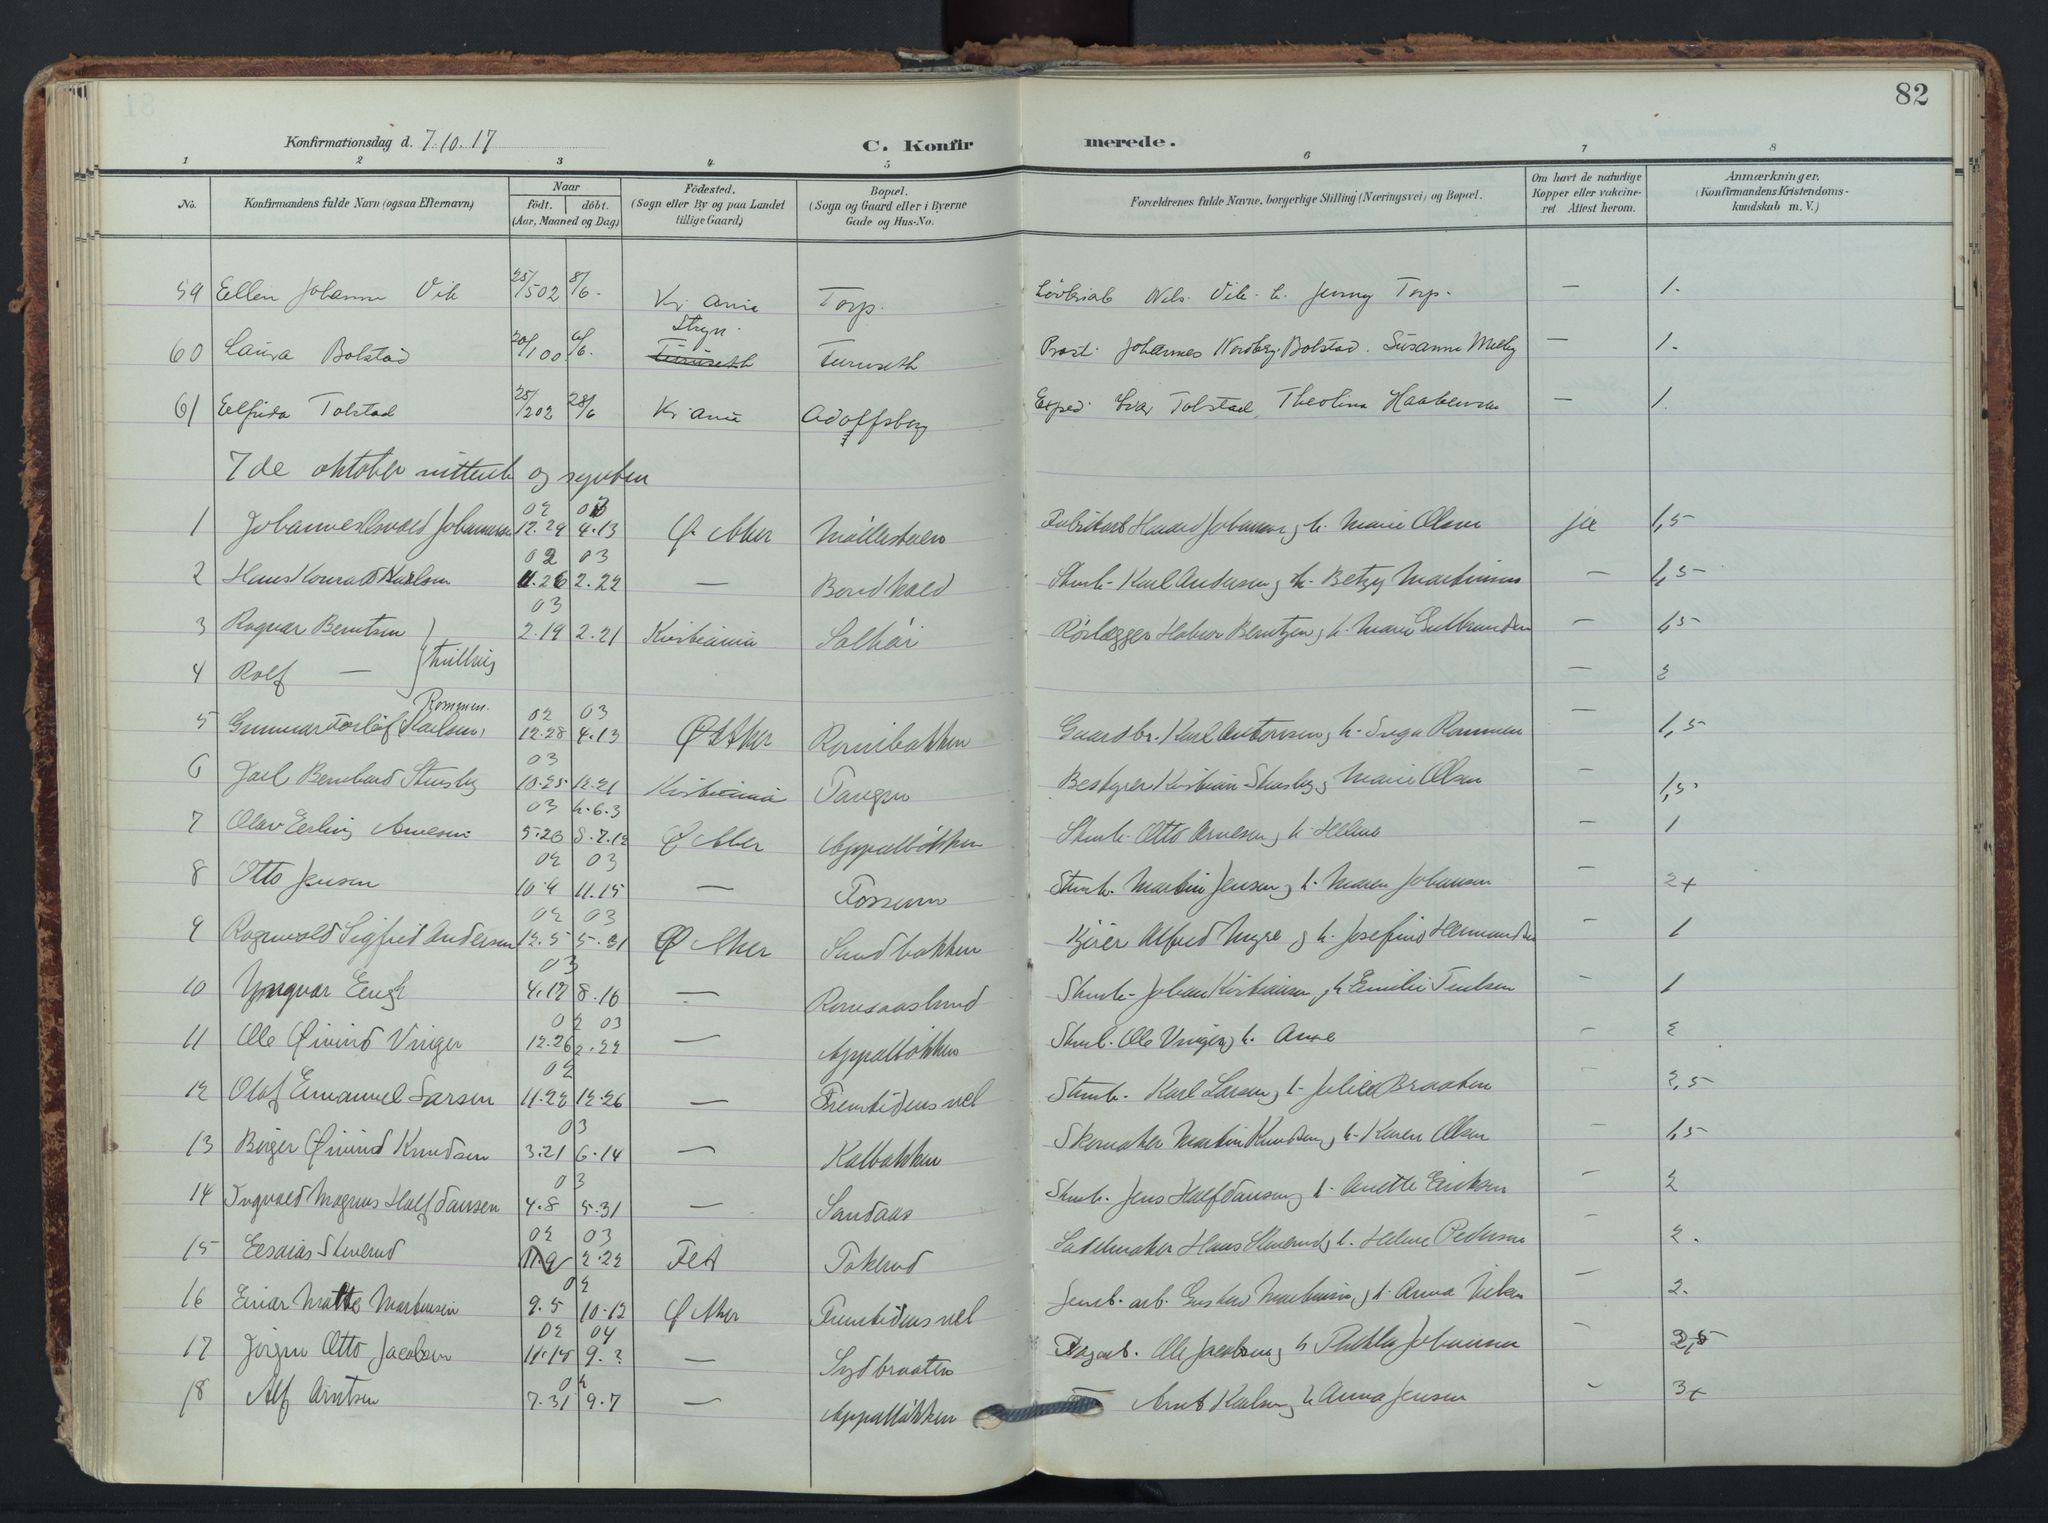 82
Konfirmationsdag d. 7.10.17
C. Konfirmerede.
1 2 3 4 5 6 7 8
No. Konfirmandens fulde Navn (ogsaa Efternavn) Naar födt. döbt. (Aar, Maaned og Dag) Födested. (Sogn eller By og paa Landet tillige Gaard.) Bopæl. (Sogn og Gaard eller i Byerne Gade og Hus-No. Forældrenes fulde Navne, borgerlige Stilling (Næringsvei) og Bopæl. Om havt de naturlige Kopper eller vakcineret Attest herom. Anmærkninger. (Konfirmandens Kristendomskundskab m. V.)
59 Ellen Johanne Vik 25/502 8/6. Kr.ania Torp. Nils Vik h. Jenny Torp. — 1.
60 Laura Bolstad 20/100 6/6. Stryn. Furuseth Furuseth Prost. Johannes Nordberg Bolstad. Susanne Melby — 1.
61 Elfrida Tolstad 25/202 28/6 Kr.ania Adolfsberg Exped. Ivar Tolstad, Theolina — 1.
7de oktober nittenh og sytten
1 Johannes Osvald Johansen 02 12.29 03 4.13 Ø. Aker Möllestuen Fabrikarb Johansen g h. Marie Olsen ja 1,5
2 Hans Konrad Karlsen 02 11.26 03 2.22 — Karl Andersen g h. Betzy Martinsen — 1,5
3 Ragnar Berntsen 03 2.19 2.21 Kristiania Solhör Rörlægger Berntzen g h. Marie Gulbrandsen — 1,5
4 Rolf — } tvilling — 2
5 Gunnar Torlöf Karlsen, Rommen. 02 12.28 03 4.13 Ø Aker Romsbakken Gaardbr. Karl Antonsen g h. Inga Rommen — 1,5
6 Joel Bernhard Stensby 03 10.25 12.21 Kristiania Tangen Bestyrer Kristian Stensby g Marie Olsen — 1,5
7 Olav Erling Arnesen 03 5.20 h.6.3 8.7.12 Ø Aker Appallökken Otto Arnesen g h. Helene — 1
8 Otto Jensen 02 10.4 03 11.15 — Fossum Martin Jensen g h. Maren Johansen — 2+
9 Ragnvald Sigfred Andersen 02 12.5 03 5.31 Ø Aker Sandbakken Kjörer Alfred Myre g h. Josefine Hermansen — 1
10 Yngvar Engh 03 4.12 8.16 — Romsaaslund Johan Kristiansen g h Emilie — 1
11 Ole Øivind Vinger 02 12.26 03 2.22 — Appallökken Ole Vinger g h. Anne — 2
12 Olaf Emanuel Larsen 02 11.22 12.26 — Fremtidens vel Karl Larsen g h. Julia Braaten — 2,5
13 Birger Øivind Knudsen 03 3.21 6.14 — Kalbakken Skomaker Martin Knudsen g h. Karen Olsen — 1,5
14 Ingvald Magnus Halfdansen 03 4.8 5.31 — Sandaas Jens Halfdansen g h. Anette Eriksen — 2
15 Esaias Skverud 02 11.9 03 2.22 Fet Tokerud Sadelmaker Hans g h. Helene Pedersen — 2.
16 Einar Martinsen 02 9.5 10.12 Ø Aker Fremtidens vel Jernb. arb. Gustav Martinsen g h. Anna — 2.
17 Jörgen Otto Jacobsen 02 11.15 04 9.3 — Sydbraaten Ole Jacobsen g h Thekla Johansen — 2,5
18 Alf Arntsen 02 7.31 9.7 — Appallökken Arnt Karlsen g h Anna Jensen — 3+